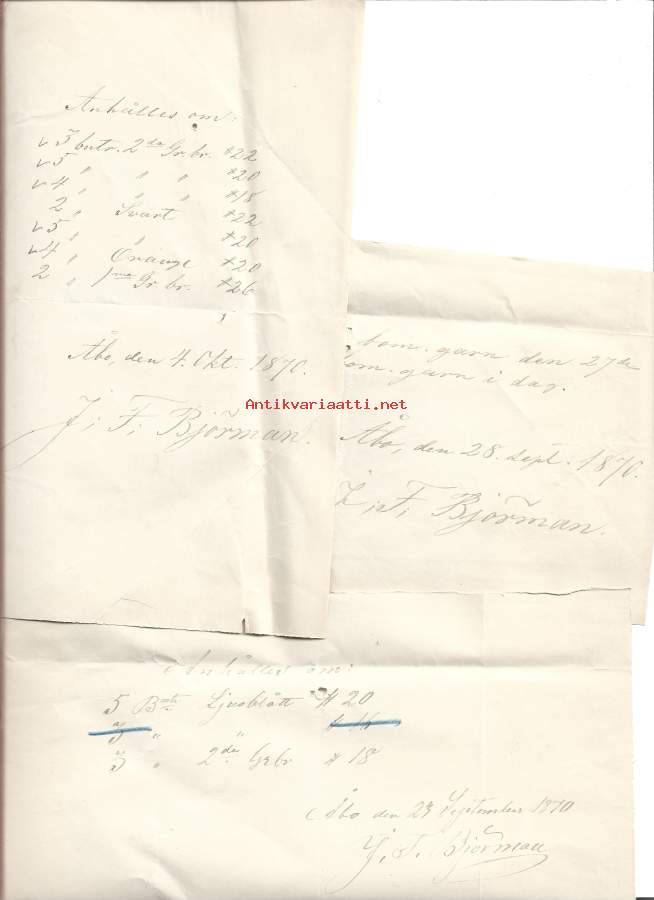 Anhålles om:
v 3 buntr. 2da Gr. br. #22
v 5 " " " #20
v 4 " " " #18
2 " Svart #22
v 5 " " #20
v 4 " Orange #20
2 " 1ma Gr. br. #26
Åbo, den 4. Okt. 1870.
J; F; Björman.
bom. garn den 27de
bom. garn i dag.
Åbo, den 28. Sept. 1870.
J; F; Björman.
Antikvariaatti.net
Anhålles om:
5 Ljusblått # 20
3 " "
3 " 2da Gr br # 18
Åbo den 23 September 1870
J. F. Björman